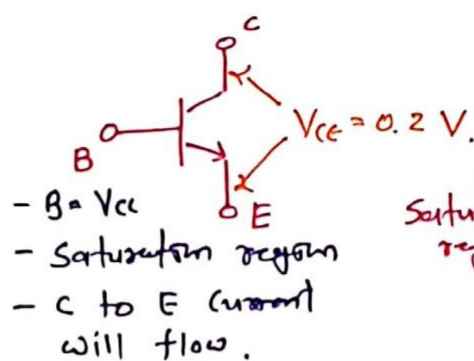 C
B
V_CE = 0.2 V.
E
- B = Vcc
- Saturation region
- C to E Current
will flow.